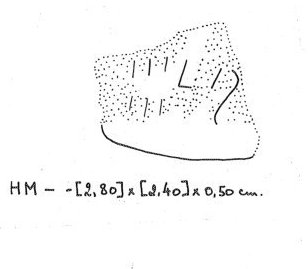 HM – -[2,80] x [2,40] x 0,50 cm.